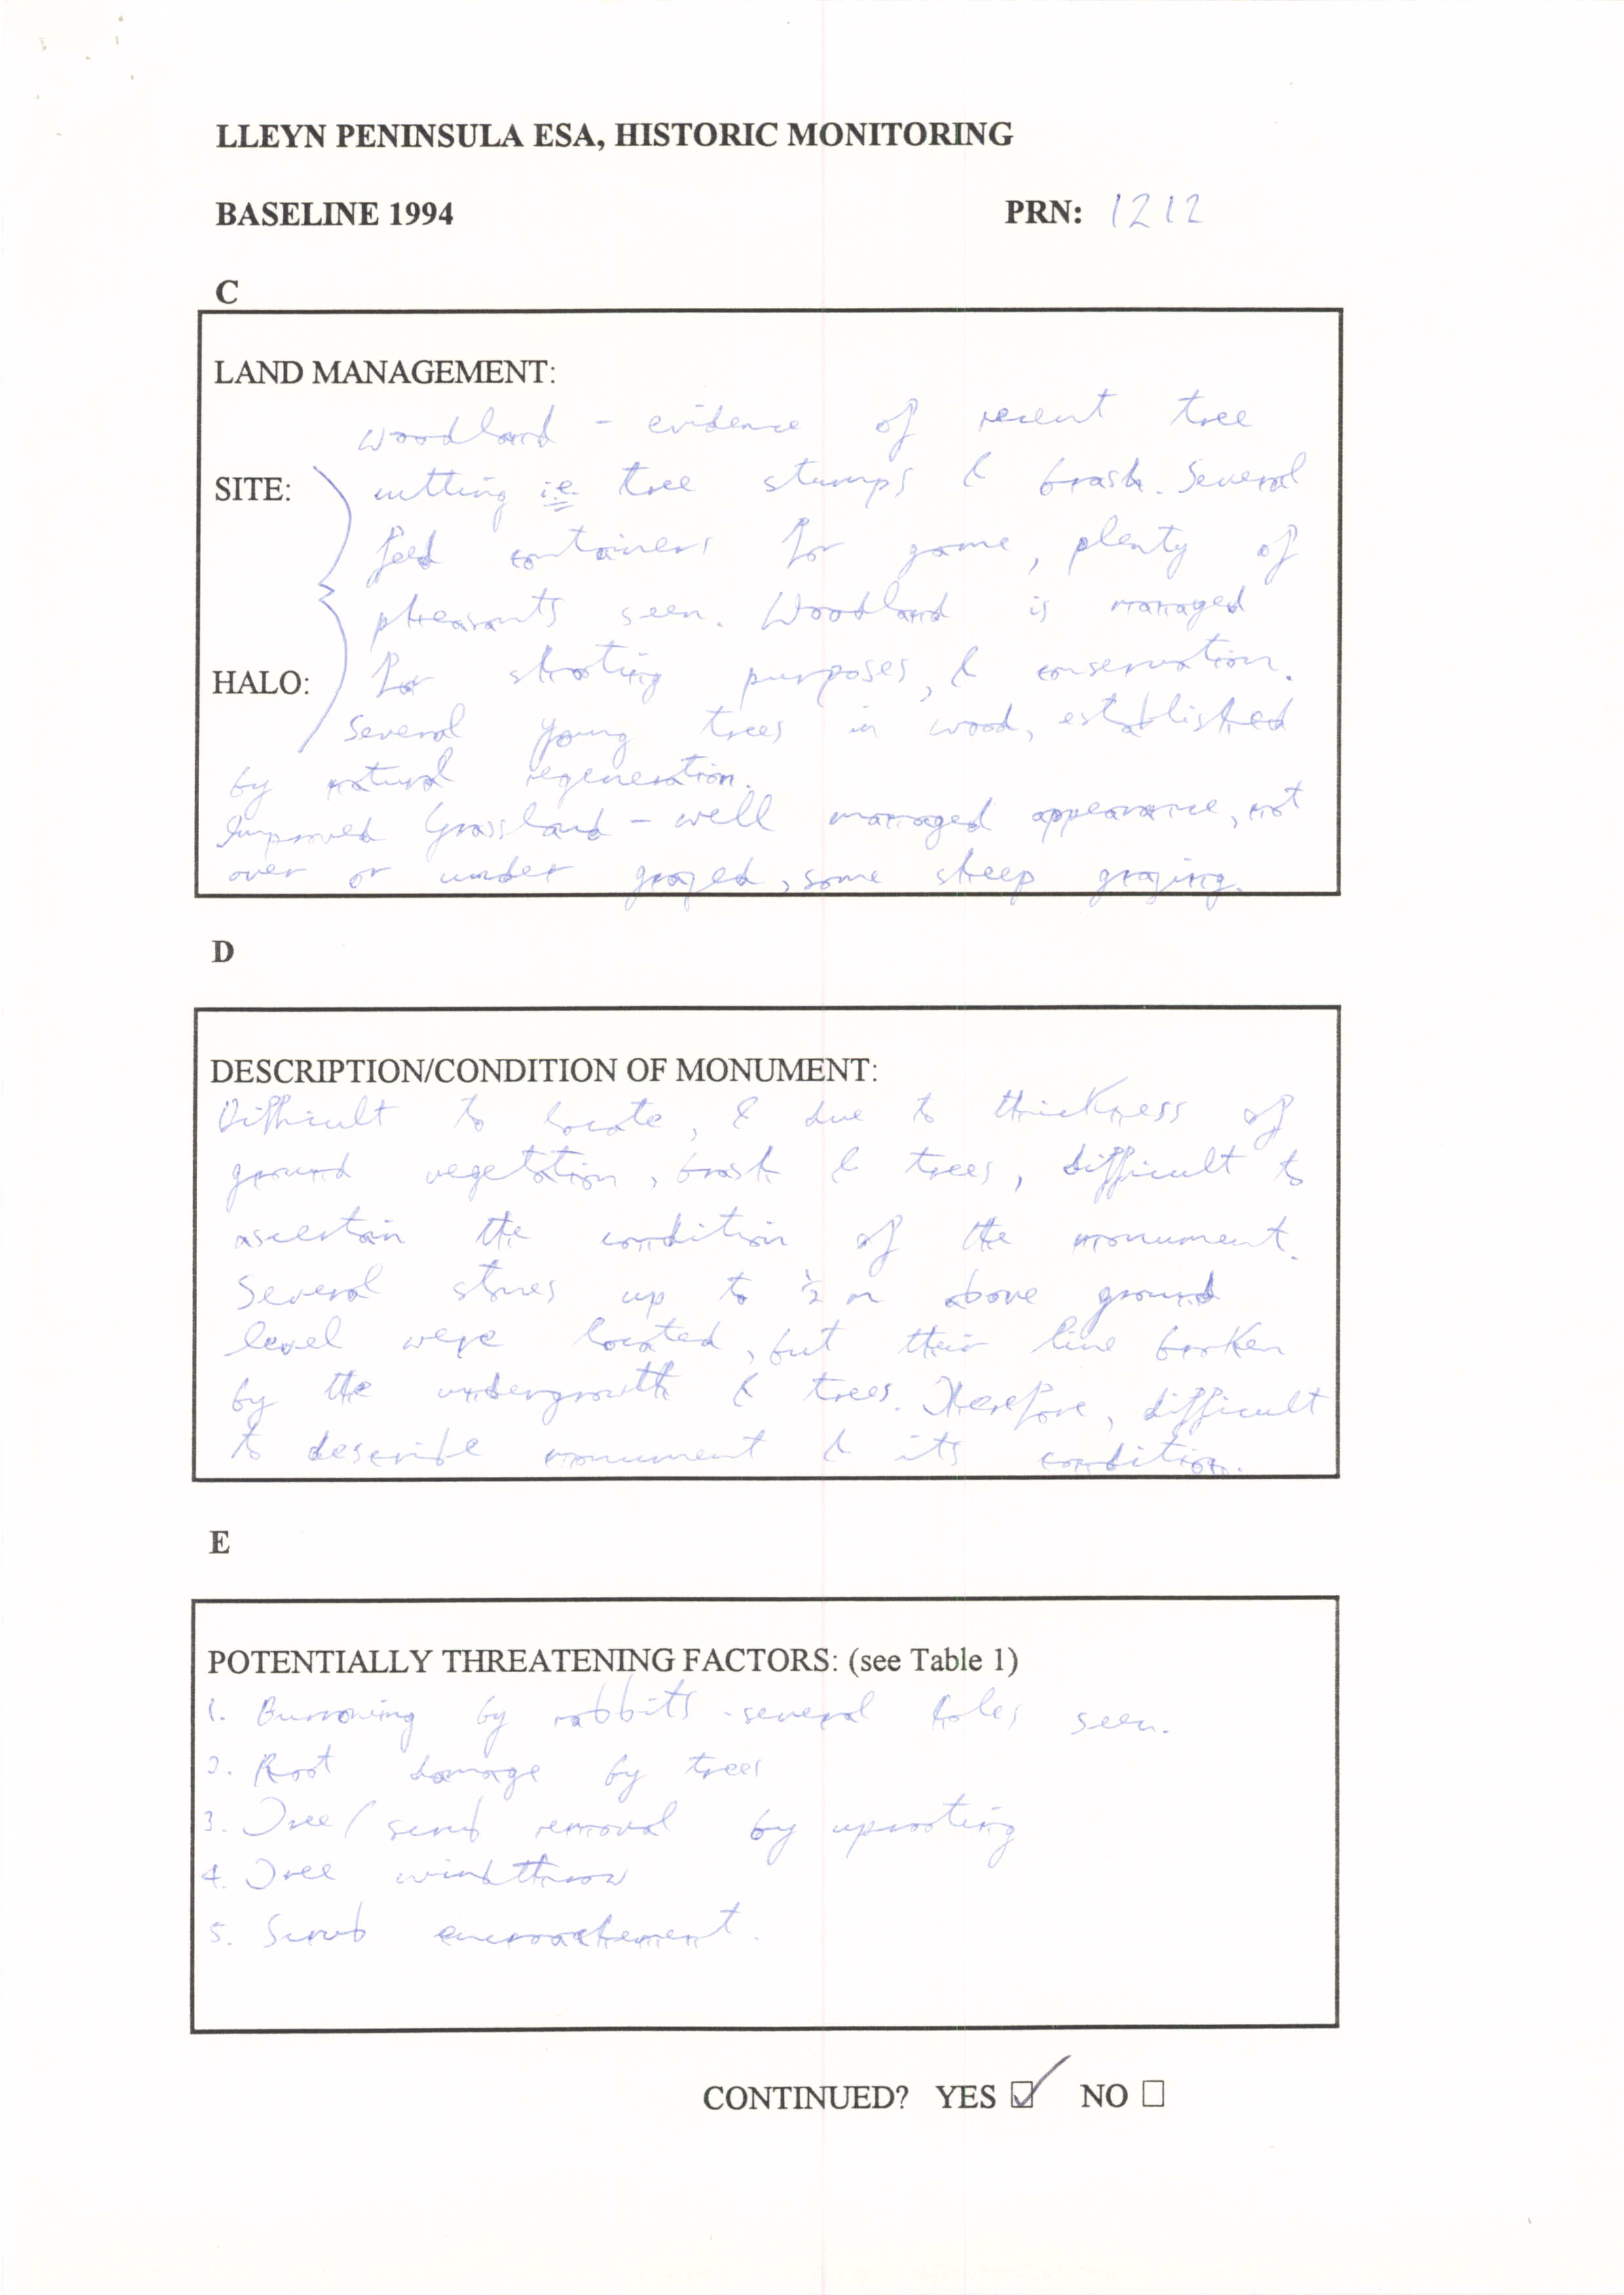 LLEYN PENINSULA ESA, HISTORIC MONITORING
BASELINE 1994 PRN: 1212
C
LAND MANAGEMENT:
Woodland - evidence of recent tree
SITE: cutting ie tree stumps & brash. Several
feed containers for game, plenty of
pheasants seen. Woodland is managed
HALO: for shooting purposes, & conservation.
Several young trees in wood, established
by natural regeneration.
Improved Grassland - well managed appearance, not
over or under grazed, some sheep grazing.
D
DESCRIPTION/CONDITION OF MONUMENT:
Difficult to locate, & due to thickness of
ground vegetation, brash & trees, difficult to
ascertain the condition of the monument.
Several stones up to ½ m above ground
level were located, but their line broken
by the undergrowth & trees. Therefore, difficult
to describe monument & its condition.
E
POTENTIALLY THREATENING FACTORS: (see Table 1)
1. Burrowing by rabbits - several holes seen.
2. Root damage by trees
3. Tree/scrub removal by uprooting
4. Tree windthrow
5. Scrub encroachement.
CONTINUED? YES ☑ NO ☐